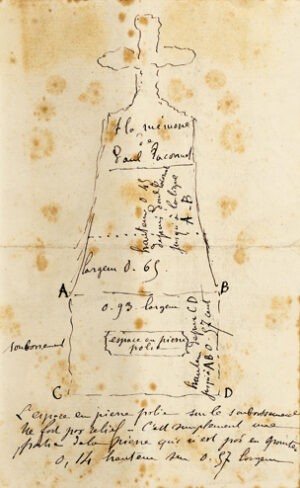 A la mémoire
de
Paul
hauteur 0.45
depuis
jusqu'à la ligne
A-B
largeur 0.65
A
B
0.93 largeur
hauteur depuis CD
jusqu'à AB 0.
soubassement
espace en pierre
polie
C
D
L'espace en pierre polie sur le soubassement
ne fait pas relief - C'est simplement une
de la pierre qui
0,14 hauteur sur 0.57 longueur